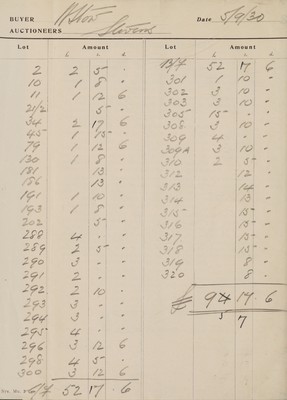 BUYER W Stow Date 5/9/30
AUCTIONEERS Stevens
Lot Amount
£ s d
2 2 5 "
10 1 8 "
11 1 12 6
21/2 5 "
34 2 17 6
45 1 15 "
79 1 12 6
130 1 8 "
181 13 "
186 13 "
191 1 10 "
193 1 8 "
202 5 "
288 4 " "
289 2 5 "
290 3 " "
291 2 " "
292 2 10
293 3 " "
294 3 " "
295 4 " "
296 3 12 6
298 4 5 "
300 3 12 6
C/f 52 17 6
Lot Amount
£ s d
B/f 52 17 6
301 1 10 "
302 3 10 "
303 3 10 "
305 15 " "
308 3 10 "
309 4 " "
309A 3 10 "
310 2 5 "
312 12 "
313 14 "
314 13 "
315 15 "
316 15 "
317 15 "
318 15 "
319 8 "
320 8 "
£ 94 17 6
5 7